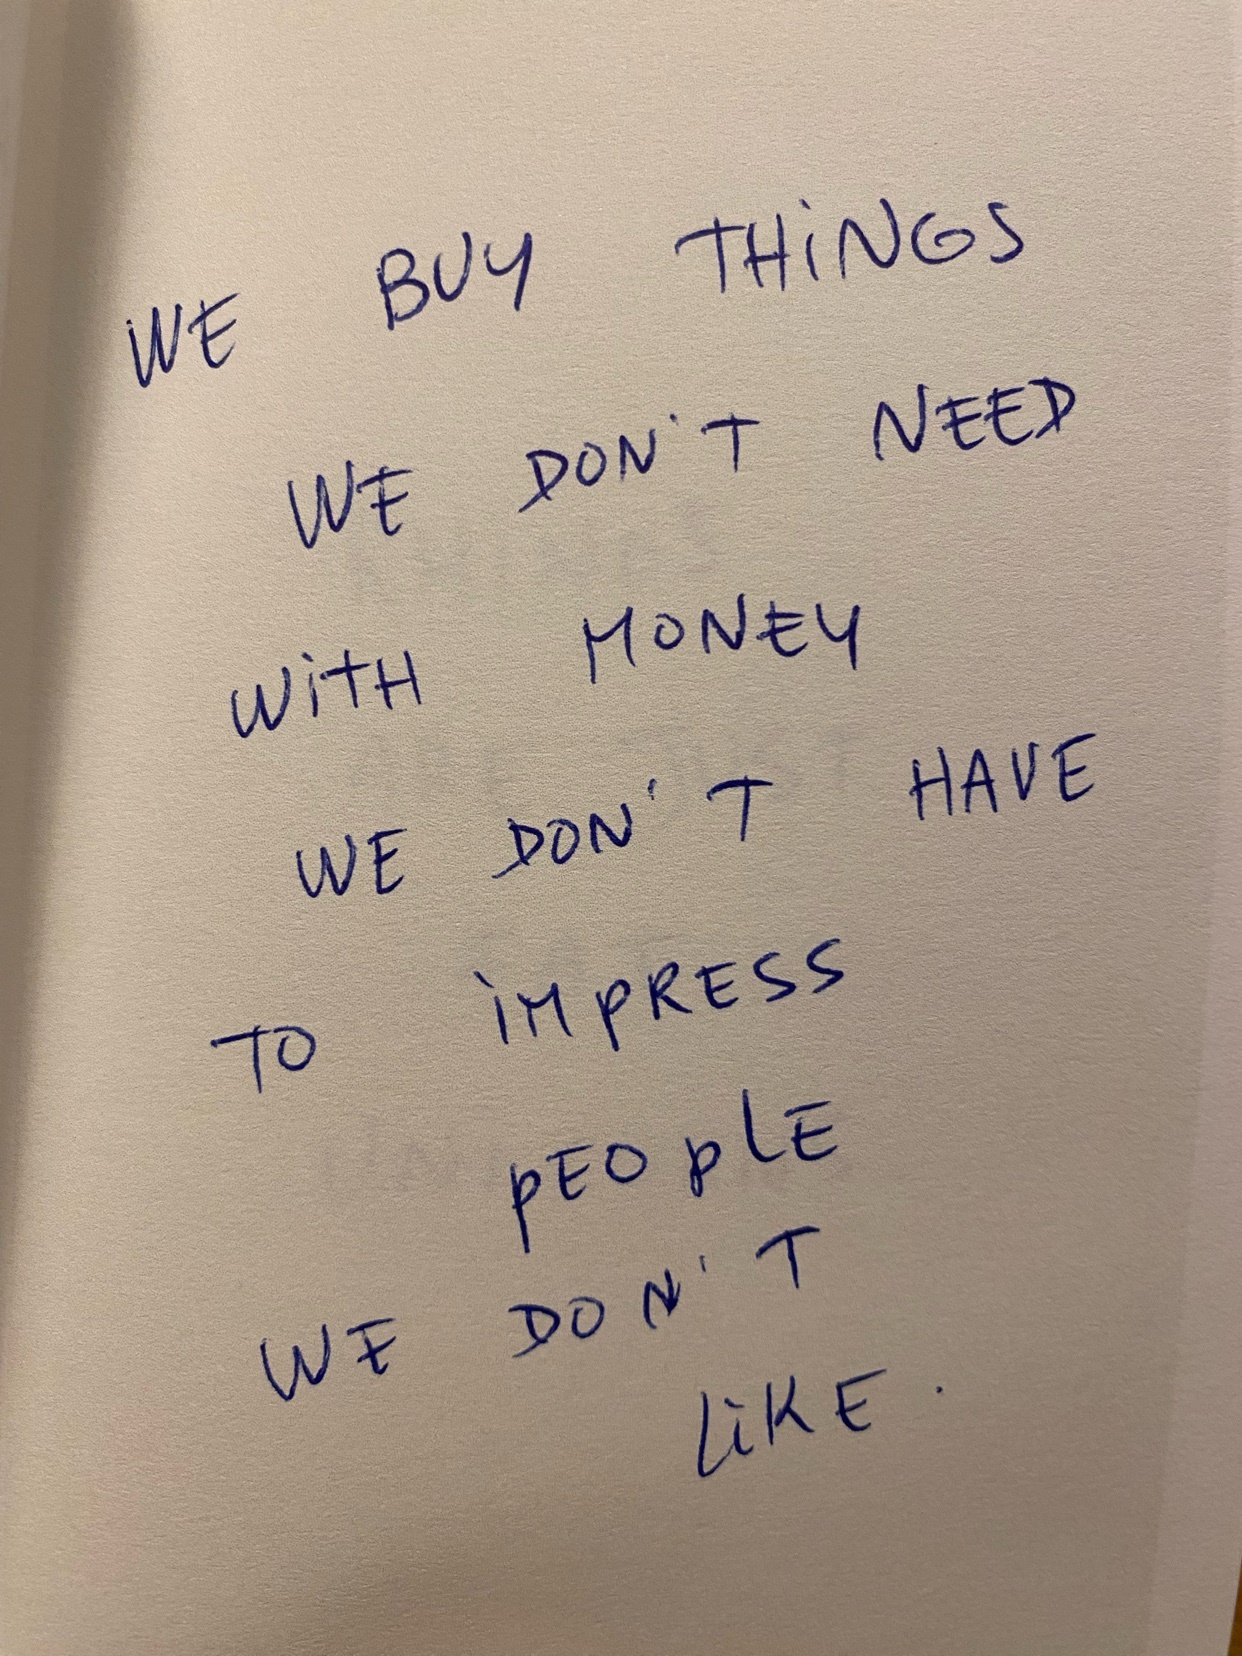 WE BUY THiNGS
WE DON'T NEED
WiTH MONEY
WE DON'T HAVE
TO iMPRESS
PEOPLE
WE DON'T
LiKE.